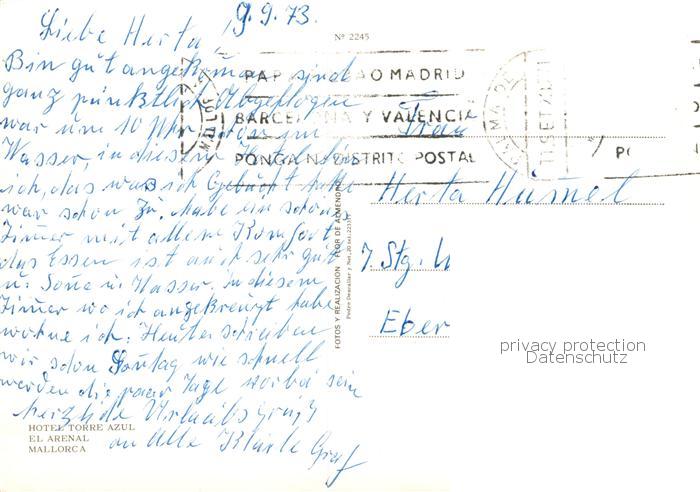 9.9.73.
Liebe Herta!
Bin gut angekommen, sind
ganz pünktlich Abgeflogen
war um 10 Uhr schon im
Wasser, in diesem Hotel bin
ich, das was ich Gebucht hatte
war schon zu, habe ein schönes
Zimer mit allem Komfort
das Essen ist auch sehr gut
u. Sone u. Wasser. in diesem
Zimer wo ich angekreuzt habe
wohne ich. Heute schreiben
wir schon Sontag wie schnell
werden die paar Tage vorbei sein
herzliche Urlaubs Grüße
an Alle
Graf
HOTEL TORRE AZUL
EL ARENAL
MALLORCA
Nº 2245
MADRID
BARCELONA Y VALENCIA
PONGA Nº DISTRITO POSTAL
PALMA DE
11 SET
FOTOS Y REALIZACION FLOR DE ALMENDRO
Frau
Herta Hümel
7. Stg. 4
Eber
privacy protection
Datenschutz